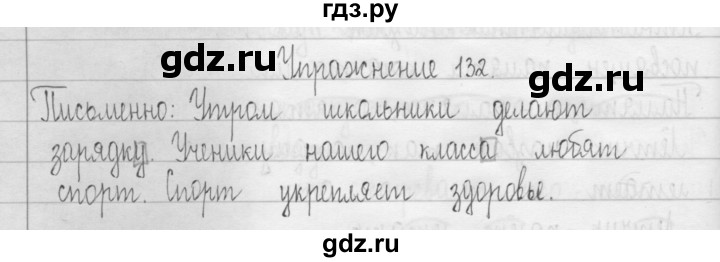 гдз.ру
gdz.ru gdz.ru
Упражнение 132.
Письменно: Утром школьники делают
зарядку. Ученики нашего класса любят
спорт. Спорт укрепляет здоровье.
gdz.ru